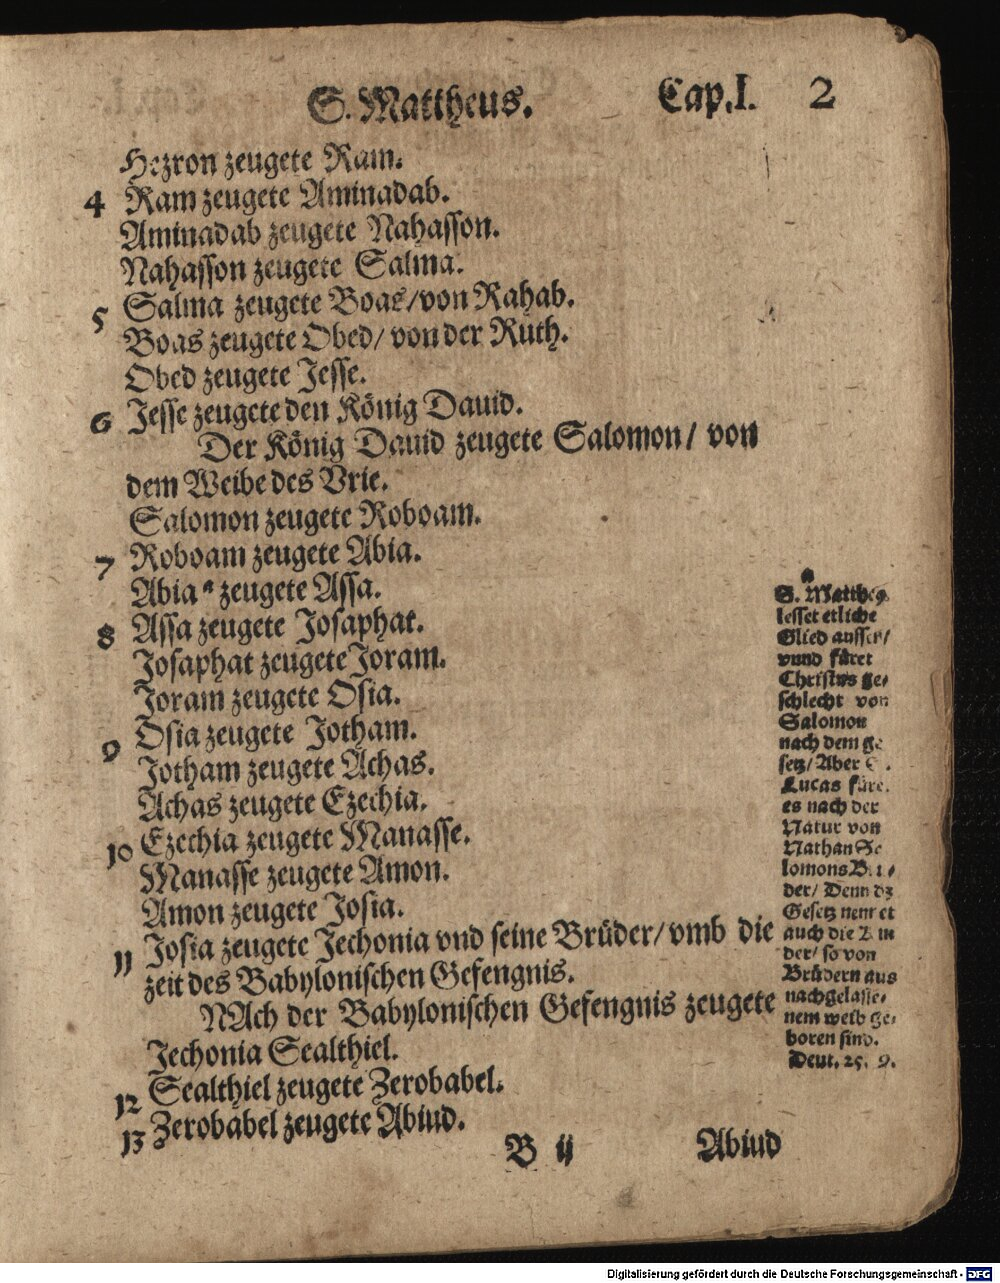 S. Mattheus. Cap. I. 2
Hezron zeugete Ram.
4 Ram zeugete Aminadab.
Aminadab zeugete Nahasson.
Nahasson zeugete Salma.
5 Salma zeugete Boas/von Rahab.
Boas zeugete Obed/ von der Ruth.
Obed zeugete Jesse.
6 Jesse zeugete den König Dauid.
Der König Dauid zeugete Salomon/ von
dem Weibe des Vrie.
Salomon zeugete Roboam.
7 Roboam zeugete Abia.
Abia a zeugete Assa.
8 Assa zeugete Josaphat.
Josaphat zeugete Joram.
Joram zeugete Osia.
9 Osia zeugete Jotham.
Jotham zeugete Achas.
Achas zeugete Ezechia.
10 Ezechia zeugete Manasse.
Manasse zeugete Amon.
Amon zeugete Josia.
11 Josia zeugete Jechonia vnd seine Brüder/ vmb die
zeit des Babylonischen Gefengnis.
NAch der Babylonischen Gefengnis zeugete
Jechonia Sealthiel.
12 Sealthiel zeugete Zerobabel.
13 Zerobabel zeugete Abiud.
B ij Abiud
a
S. Matthe9
lesset etliche
Glied ausser/
vnnd füret
Christus ge-
schlecht von
Salomon
nach dem
setz/ Aber
Lucas
es nach der
Natur von
Nathan
lomons
der/ Denn dz
Gesetz nennet
auch die
der/ so von
Brüdern aus
nachgelasse-
nem weib ge-
boren sind.
Deut. 25. 9.
Digitalisierung gefördert durch die Deutsche Forschungsgemeinschaft - DFG